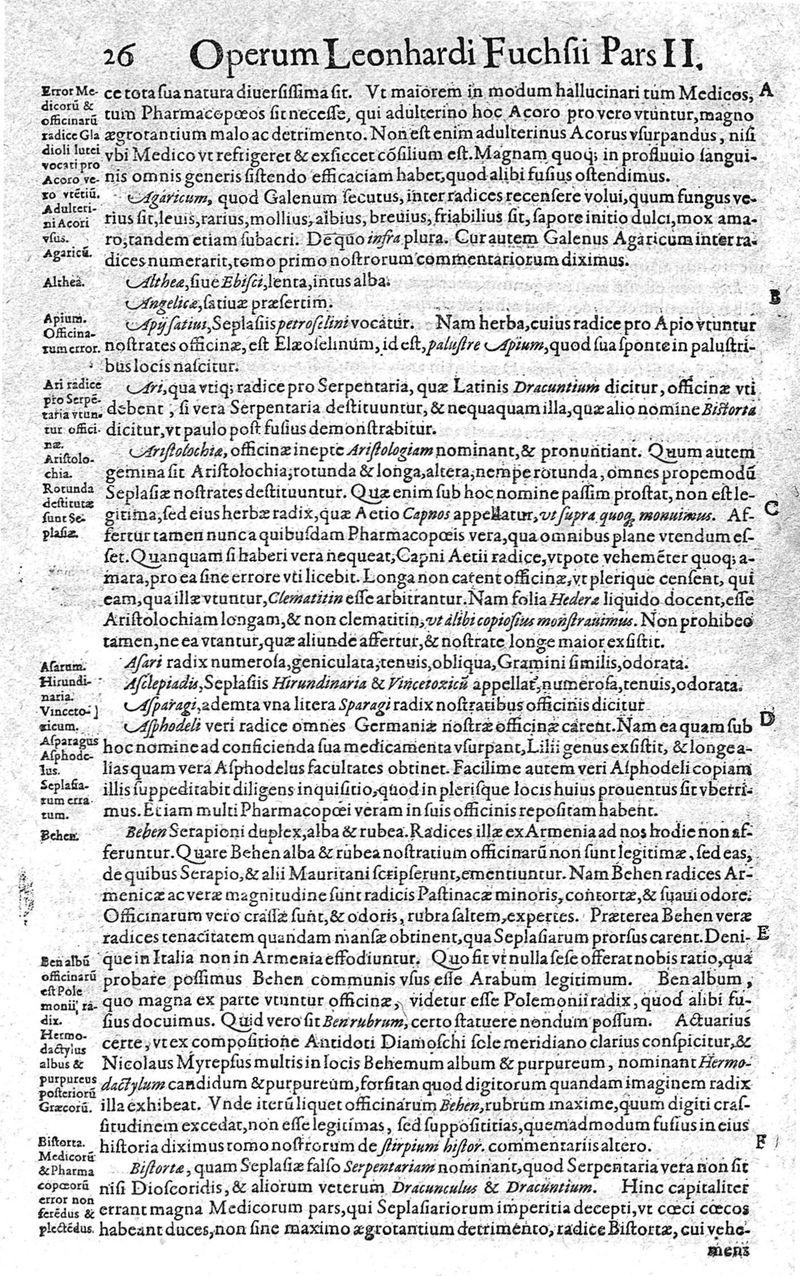 26 Operum Leonhardi Fuchsii Pars II.
ce tota ſua natura diuerſiſſima ſit. Vt maiorem in modum hallucinari tum Medicos,
tum Pharmacopœos ſit neceſſe, qui adulterino hoc Acoro pro vero vtuntur, magno
ægrotantium malo ac detrimento. Non eſt enim adulterinus Acorus vſurpandus, niſi
vbi Medico vt refrigeret & exſiccet cōſilium eſt. Magnam quoq; in profluuio ſangui-
nis omnis generis ſiſtendo efficaciam habet, quod alibi fuſius oſtendimus.
Agaricum, quod Galenum ſecutus, inter radices recenſere volui, quum fungus ve-
rius ſit, leuis, rarius, mollius, albius, breuius, friabilius ſit, ſapore initio dulci, mox ama-
ro, tandem etiam ſubacri. De quo infra plura. Cur autem Galenus Agaricum inter ra-
dices numerarit, tomo primo noſtrorum commentariorum diximus.
Altheæ, ſiue Ebiſci, lenta, intus alba.
Angelicæ, ſatiuæ præſertim.
Apij ſatiui, Seplaſiis petroſelini vocatur. Nam herba, cuius radice pro Apio vtuntur
noſtrates officinæ, eſt Elæoſelinum, id eſt, paluſtre Apium, quod ſua ſponte in paluſtri-
bus locis naſcitur.
Ari, qua vtiq; radice pro Serpentaria, quæ Latinis Dracuntium dicitur, officinæ vti
debent, ſi vera Serpentaria deſtituuntur, & nequaquam illa, quæ alio nomine Biſtorta
dicitur, vt paulo poſt fuſius demonſtrabitur.
Ariſtolochiæ, officinæ inepte Ariſtologiam nominant, & pronuntiant. Quum autem
gemina ſit Ariſtolochia, rotunda & longa, altera, nempe rotunda, omnes propemodū
Seplaſiæ noſtrates deſtituuntur. Quæ enim ſub hoc nomine paſſim proſtat, non eſt le-
gitima, ſed eius herbæ radix, quæ Aetio Capnos appellatur, vt ſupra quoq; monuimus. Af-
fertur tamen nunc a quibuſdam Pharmacopœis vera, qua omnibus plane vtendum eſ-
ſet. Quanquam ſi haberi vera nequeat, Capni Aetii radice, vtpote vehemēter quoq; a-
mara, pro ea ſine errore vti licebit. Longa non carent officinæ, vt plerique cenſent, qui
eam, qua illæ vtuntur, Clematitin eſſe arbitrantur. Nam folia Hederæ liquido docent, eſſe
Ariſtolochiam longam, & non clematitin, vt alibi copioſius monſtrauimus. Non prohibeo
tamen, ne ea vtantur, quæ aliunde affertur, & noſtrate longe maior exſiſtit.
Aſari radix numeroſa, geniculata, tenuis, obliqua, Gramini ſimilis, odorata.
Aſclepiadis, Seplaſiis Hirundinaria & Vincetoxicū appellat, numeroſa, tenuis, odorata.
Aſparagi, ademta vna litera Sparagi radix noſtratibus officinis dicitur
Aſphodeli veri radice omnes Germaniæ noſtræ officinæ carent. Nam ea quam ſub
hoc nomine ad conficienda ſua medicamenta vſurpant, Lilii genus exſiſtit, & longe a-
lias quam vera Aſphodelus facultates obtinet. Facilime autem veri Aſphodeli copiam
illis ſuppeditabit diligens inquiſitio, quod in pleriſque locis huius prouentus ſit vberri-
mus. Etiam multi Pharmacopœi veram in ſuis officinis repoſitam habent.
Behen Serapioni duplex, alba & rubea. Radices illæ ex Armenia ad nos hodie non af-
feruntur. Quare Behen alba & rubea noſtratium officinarū non ſunt legitimæ, ſed eas,
de quibus Serapio, & alii Mauritani ſcripſerunt, ementiuntur. Nam Behen radices Ar-
menicæ ac veræ magnitudine ſunt radicis Paſtinacæ minoris, contortæ, & ſuaui odore.
Officinarum vero craſſæ ſunt, & odoris, rubra ſaltem, expertes. Præterea Behen veræ
radices tenacitatem quandam manſæ obtinent, qua Seplaſiarum prorſus carent. Deni-
que in Italia non in Armenia effodiuntur. Quo fit vt nulla ſeſe offerat nobis ratio, qua
probare poſſimus Behen communis vſus eſſe Arabum legitimum. Ben album,
quo magna ex parte vtuntur officinæ, videtur eſſe Polemonii radix, quod alibi fu-
ſius docuimus. Quid vero ſit Ben rubrum, certo ſtatuere nondum poſſum. Actuarius
certe, vt ex compoſitione Antidoti Diamoſchi ſole meridiano clarius conſpicitur, &
Nicolaus Myrepſus multis in locis Behemum album & purpureum, nominant Hermo-
dactylum candidum & purpureum, forſitan quod digitorum quandam imaginem radix
illa exhibeat. Vnde iterū liquet officinarum Behen, rubrum maxime, quum digiti craſ-
ſitudinem excedat, non eſſe legitimas, ſed ſuppoſititias, quemadmodum fuſius in eius
hiſtoria diximus tomo noſtrorum de ſtirpium hiſtor. commentariis altero.
Biſtortæ, quam Seplaſiæ falſo Serpentariam nominant, quod Serpentaria vera non ſit
niſi Dioſcoridis, & aliorum veterum Dracunculus & Dracuntium. Hinc capitaliter
errant magna Medicorum pars, qui Seplaſiariorum imperitia decepti, vt cœci cœcos
habeant duces, non ſine maximo ægrotantium detrimento, radice Biſtortæ, cui vehe-
mens
Error Me-
dicorū &
officinarū
radice Gla
dioli lutei
vocati pro
Acoro ve-
ro vtētiū.
Adulteri-
ni Acori
vſus.
Agaricū.
Althea.
Apium.
Officina-
rum error.
Ari radice
pro Serpē-
taria vtun-
tur offici-
næ.
Ariſtolo-
chia.
Rotunda
deſtitutæ
ſunt Se-
plaſiæ.
Aſarum.
Hirundi-
naria.
Vinceto-
xicum.
Aſparagus
Aſphode-
lus.
Seplaſia-
rum erra-
tum.
Behen.
Ben albū
officinarū
eſt Pole
monii ra-
dix.
Hermo-
dactylus
albus &
purpureus
poſteriorū
Græcorū.
Biſtorta.
Medicorū
& Pharma
copœorū
error non
ferēdus &
plectēdus.
A
B
C
D
E
F